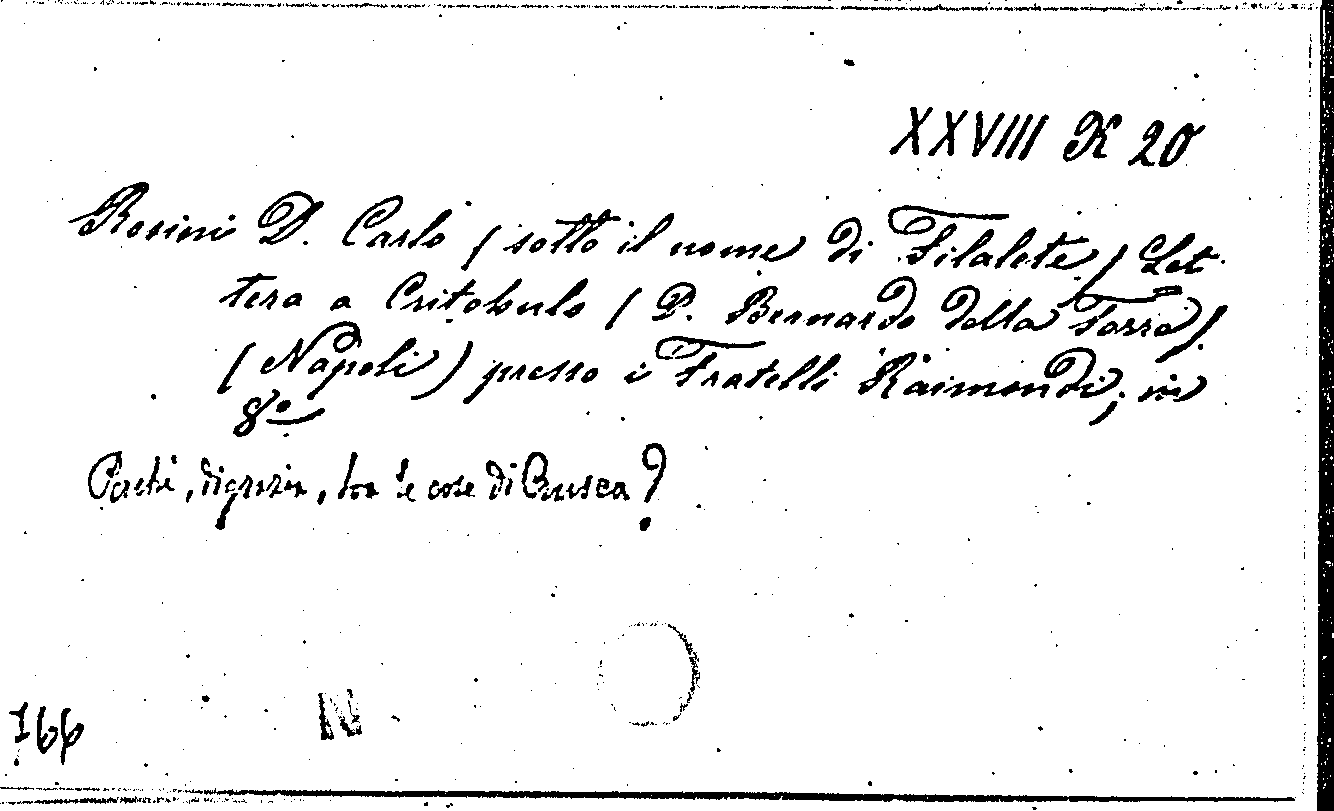 XXVIII K 20
Rosini D. Carlo (sotto il nome di Filalete) Let
tera a Critobulo (P. Bernardo della Torre)
(Napoli) presso i Fratelli Raimondi, in
8º
Perché, di grazia, tra le cose di Crusca?
166
N